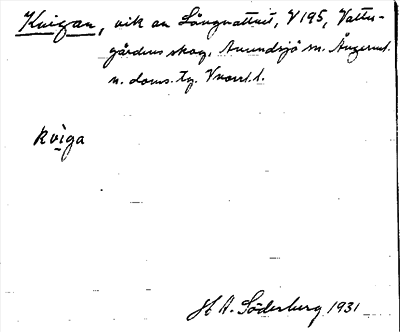 Kvigan, vik av Långvattnet, V 195, Vattu-
gårdens skog, Anundsjö sn. Ångerml.
n. doms. tg. Vnorrl. l.
kviga
H A. Söderberg 1931